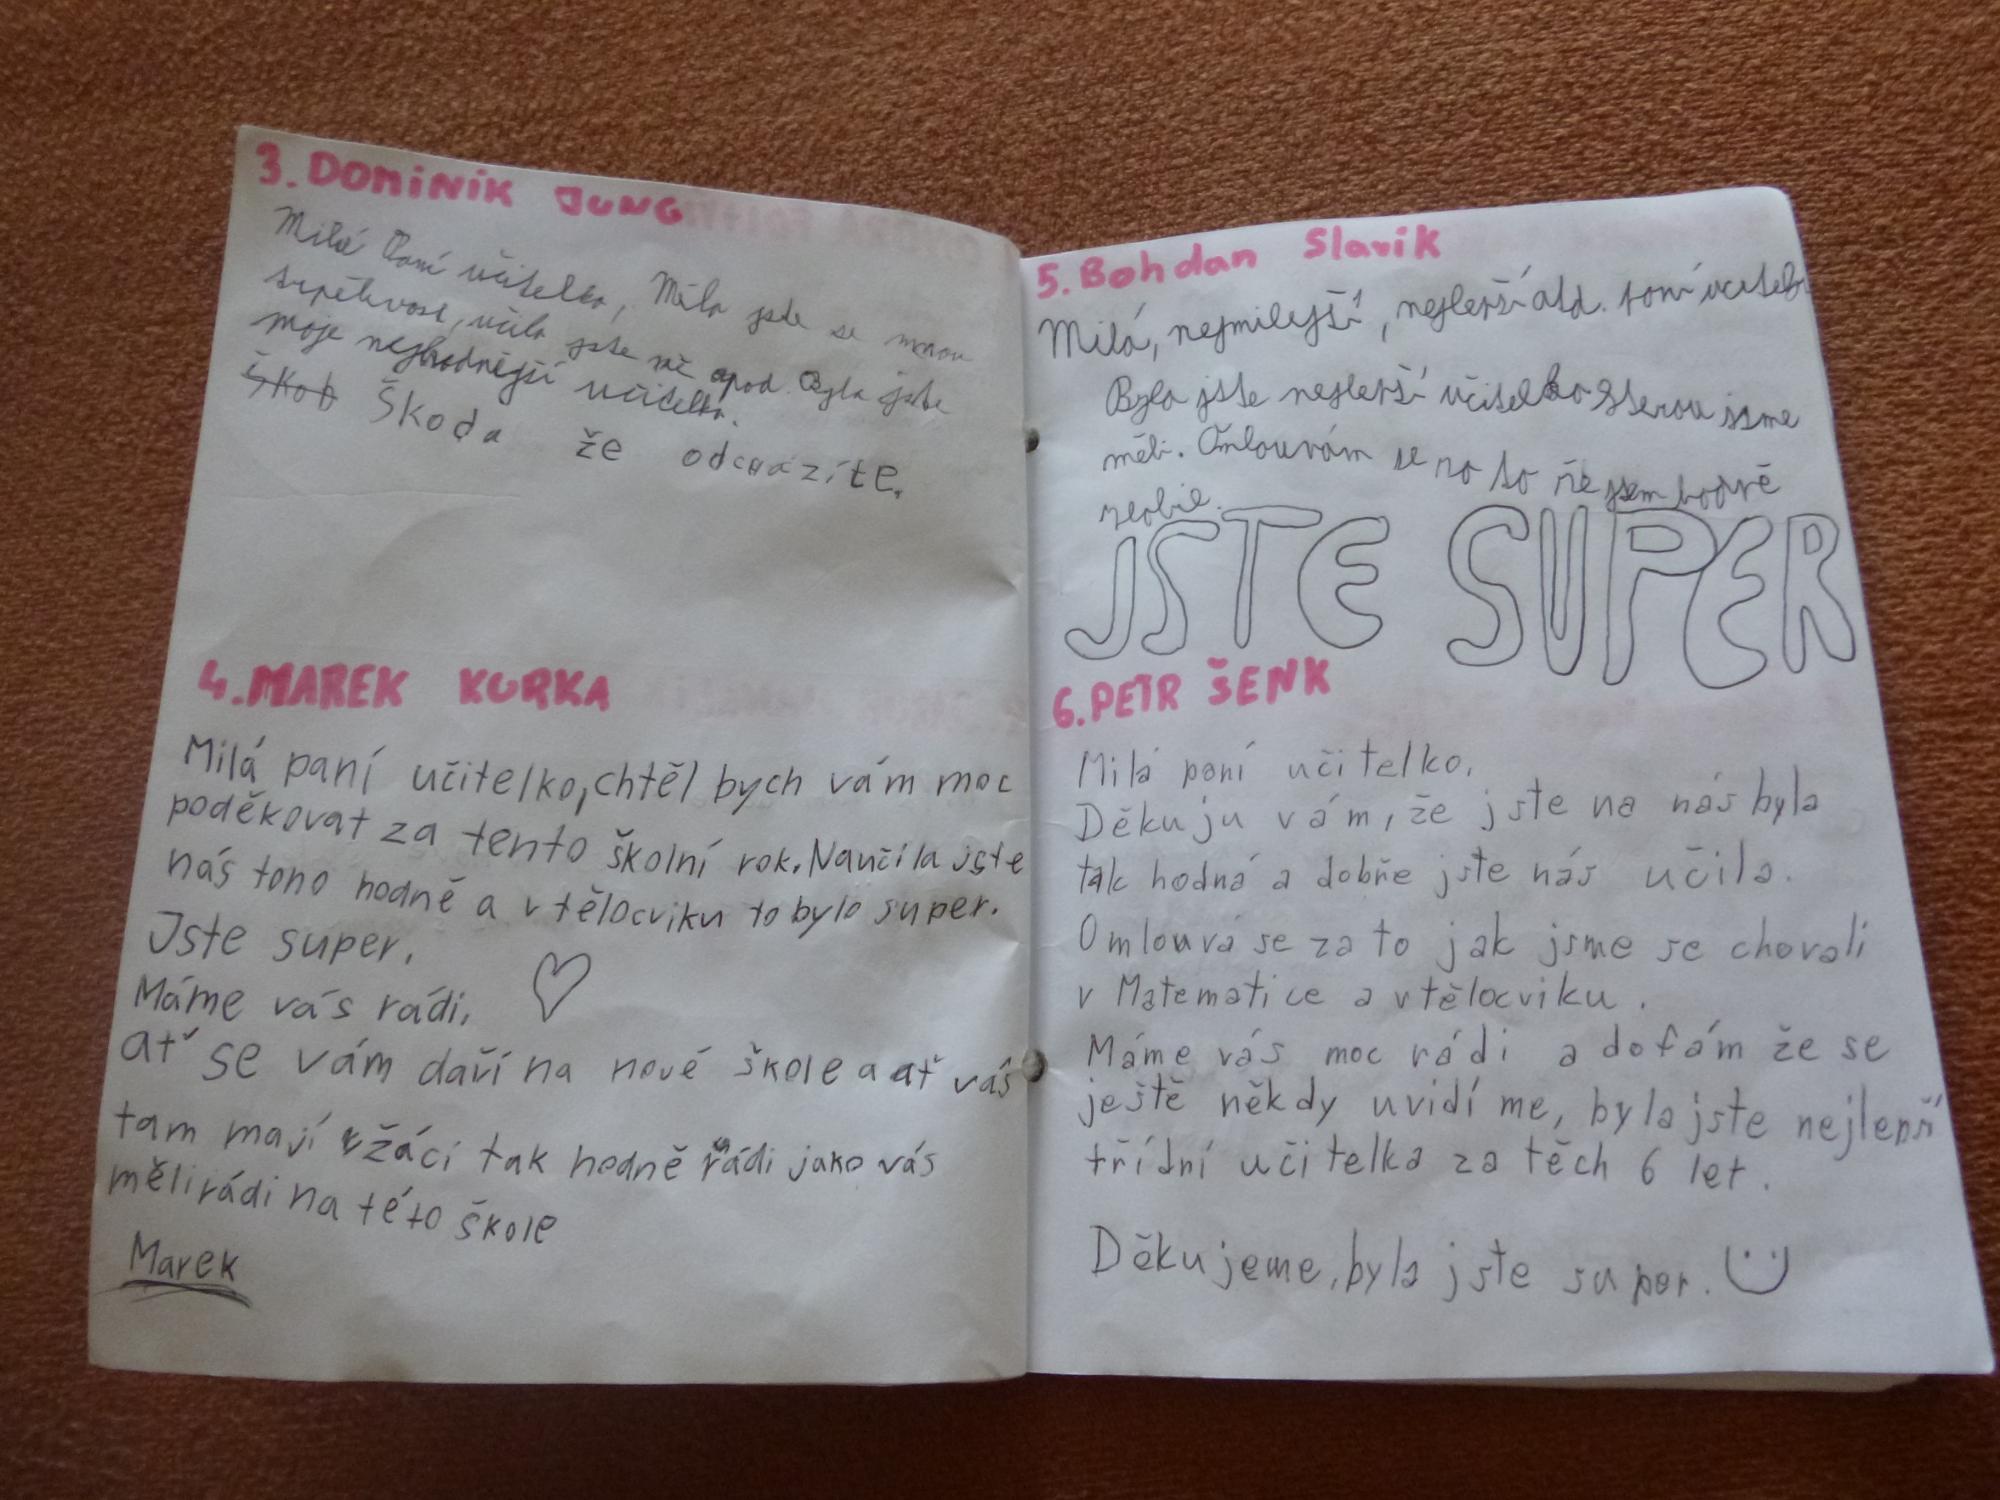 3. DOMINIK JUNG
Milá Paní učitelko, Měla jste se mnou
trpělivost, učila jste mě apod. Byla jste
moje nejhodnější učitelka.
Škob Škoda že odcházíte.
4. MAREK KURKA
Milá paní učitelko, chtěl bych vám moc
poděkovat za tento školní rok. Naučila jste
nás toho hodně a v tělocviku to bylo super.
Jste super.
Máme vás rádi,
ať se vám daří na nové škole a ať vás
tam mají žáci tak hodně rádi jako vás
měli rádi na této škole
Marek
5. Bohdan Slavik
Milá, nejmilejší, nejlepší atd. paní učitelko
Byla jste nejlepší učitelka kterou jsme
měli. Omlouvám se za to že jsem hodně
zlobil.
JSTE SUPER
6. PETR ŠENK
Milá paní učitelko.
Děkuju vám, že jste na nás byla
tak hodná a dobře jste nás učila.
Omlouvá se za to jak jsme se chovali
v Matematice a v tělocviku.
Máme vás moc rádi a dofám že se
ještě někdy uvidíme, byla jste nejlepší
třídní učitelka za těch 6 let.
Děkujeme, byla jste super.